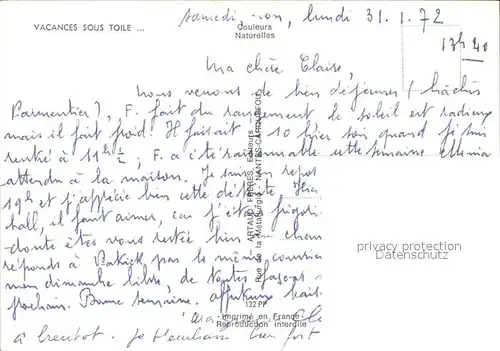 VACANCES SOUS TOILE ...
Couleurs
Naturelles
samedi, non, lundi 31.1.72
13h40
Ma chère Claire,
nous venons de bien déjeuner (hachis
Parmentier), F. fait du rangement le soleil est radieux
mais il fait froid. Il faisait - 10 hier soir quand je suis
rentré à 11h ½ ; F. a été raisonnable cette semaine et m'a
attendu à la maison. Je suis en repos
19h et j'apprécie bien cette détente.
hall, il faut aimer, car j'étais frigori
doute êtes vous restée bien au chau
réponds à Patrick par le même courrier
mon dimanche libre, de toutes façons
prochain. Bonne semaine. affectueux bais
à bientôt. je t'embrasse bien fort
ARTAUD FRÈRES, Editeurs
Rue de la Métallurgie - NANTES-CARQUEFOU
132 PF
Imprimé en France
Reproduction interdite
privacy protection